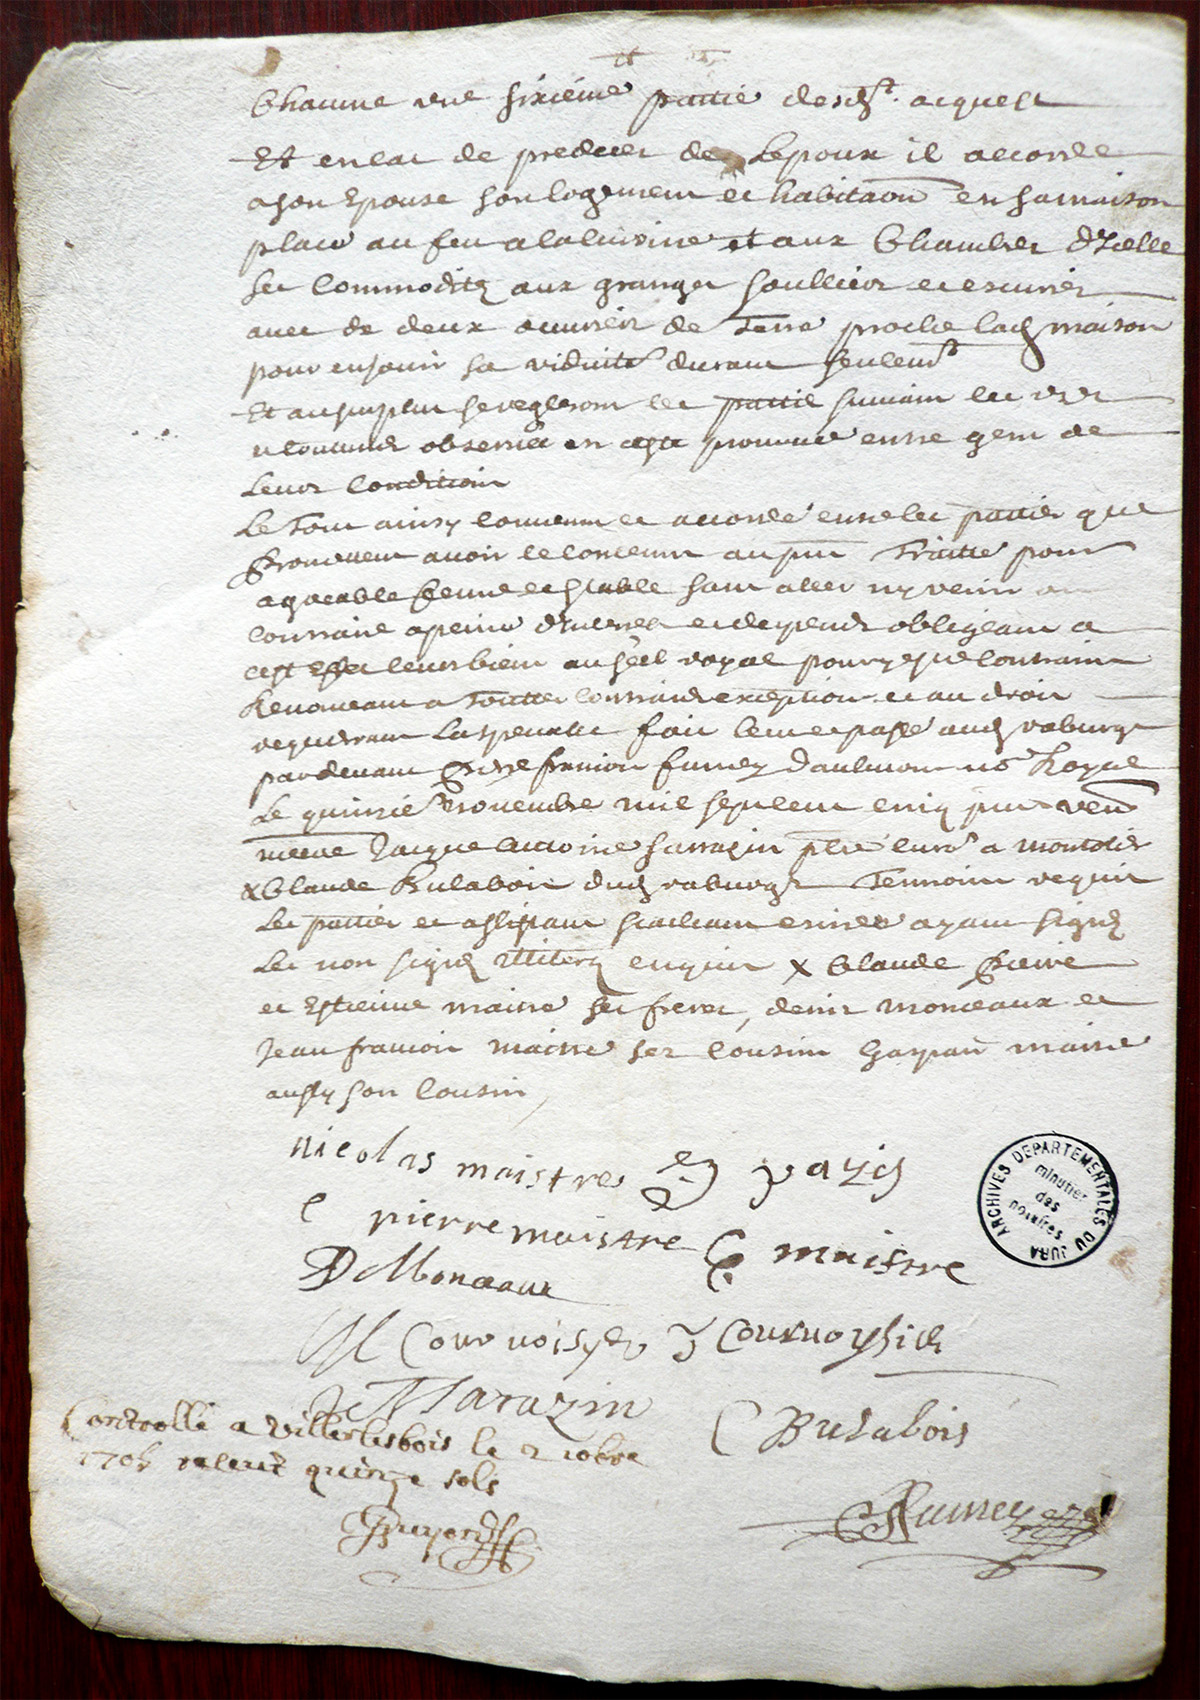 Chacune une sixieme partie desd.t acquest
Et en cas de predeces de Lepoux il accorde
a son Epouse son logement et habitaon en sa maison
place au feu a la cuisine et aux Chambres d'Icelle
ses Commoditez aux granges soulliers et escuries
avec de deux ouvrées de Terre proche lad maison
pour en jouir sa viduité durant seulem.t
Et au surplus se regleront les partie suivant les us
et coutumes observées en ceste province entre gens de
Leurs Condition
Le Tout ainsy convenu et accordé entre les parties que
promettent avoir le contenu au pnt Traitté pour
agreable ferme et stable sans aller ny venir au
contraire a peine d'interest et despens obligeant a
cest effet leurs biens au seel royal pour y estre contraint
Renonceant a toutte contraires exception et au droit
requerant La speciale fait leu et passé aud vaburgt
pardevant Pierre francois fumey Daulmon no.re Royal
Le quinzie novembre mil sept cent cinq pnts ven
messe Jacque Antoine sarrazin ptre curé a montolier
x Claude Bulabois dud vaburgt Tesmoins requis
Les parties et assistant scachant escrire ayant signez
Les non signez illiterez enquis x Claude Pierre
et Estienne maitre ses freres, denis monceaux et
Jean francois maitre ses cousins Gaspart maitre
aussy son Cousin,
nicolas maistre E J vazid
C pierre maistre C. maistre
D Monceaux
M Cournoisyer J Cournoysier
J A Sarazin
C Bulabois
Controllé a Villerlesbois le 2 xbre
1705 receut quinze sols
Fumey
ARCHIVES DEPARTEMENTALES DU JURA
minutier
des
notaires